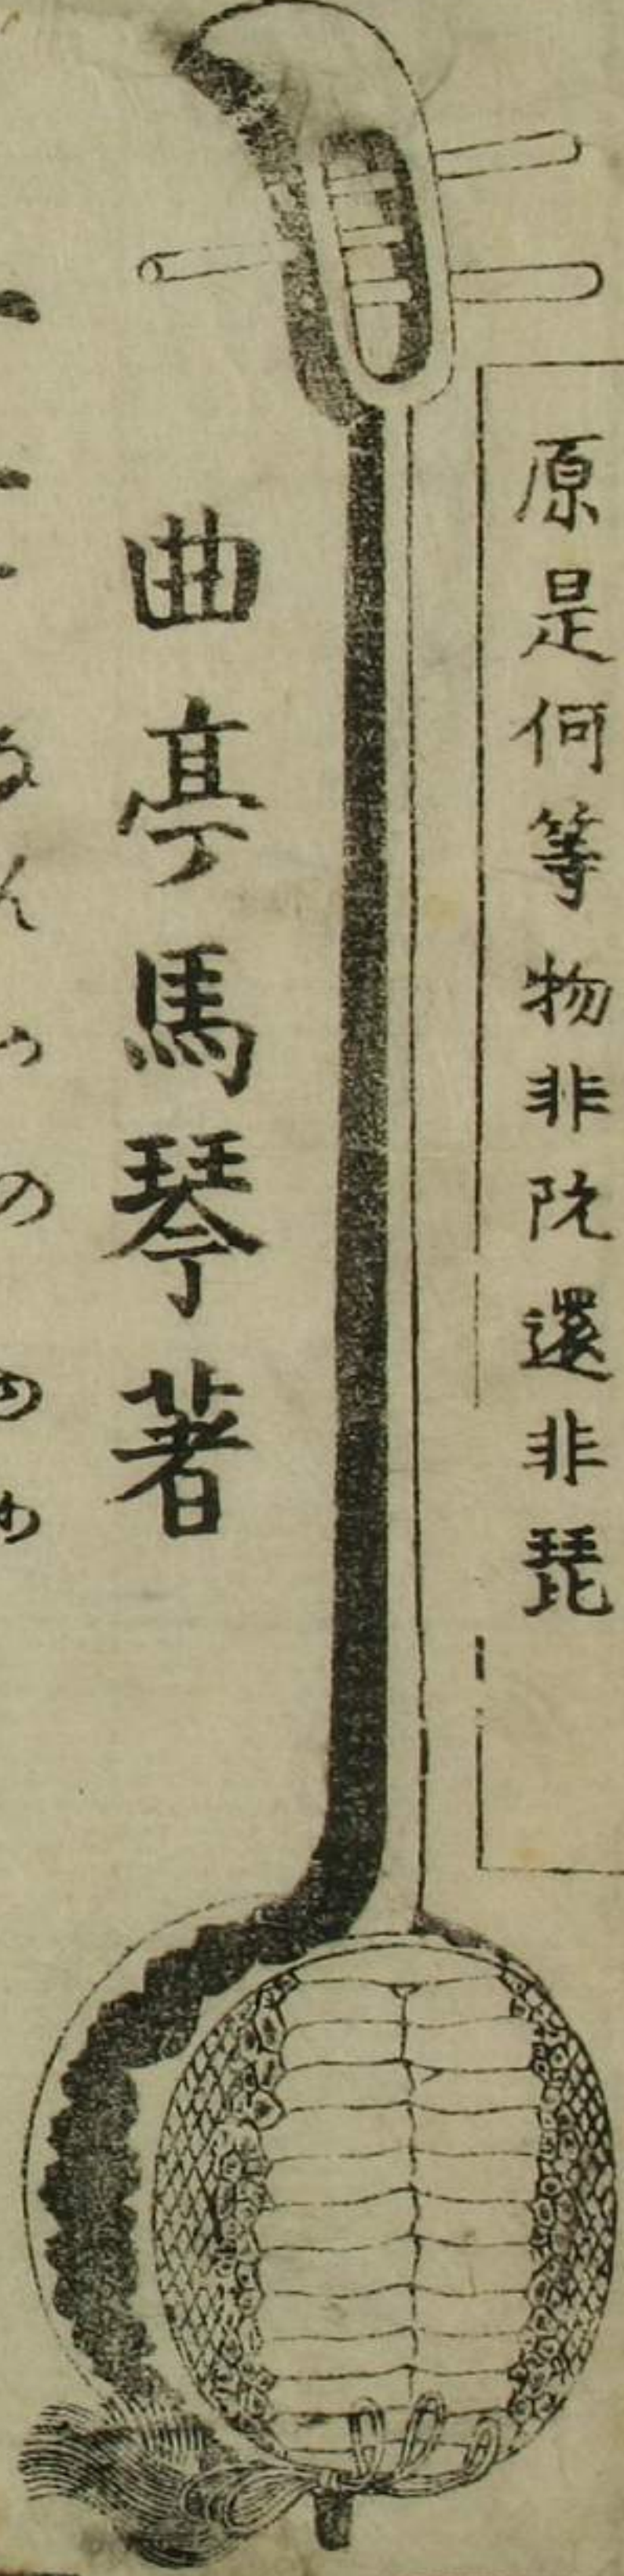 原是何等物非阮還非琵
曲亭馬琴著